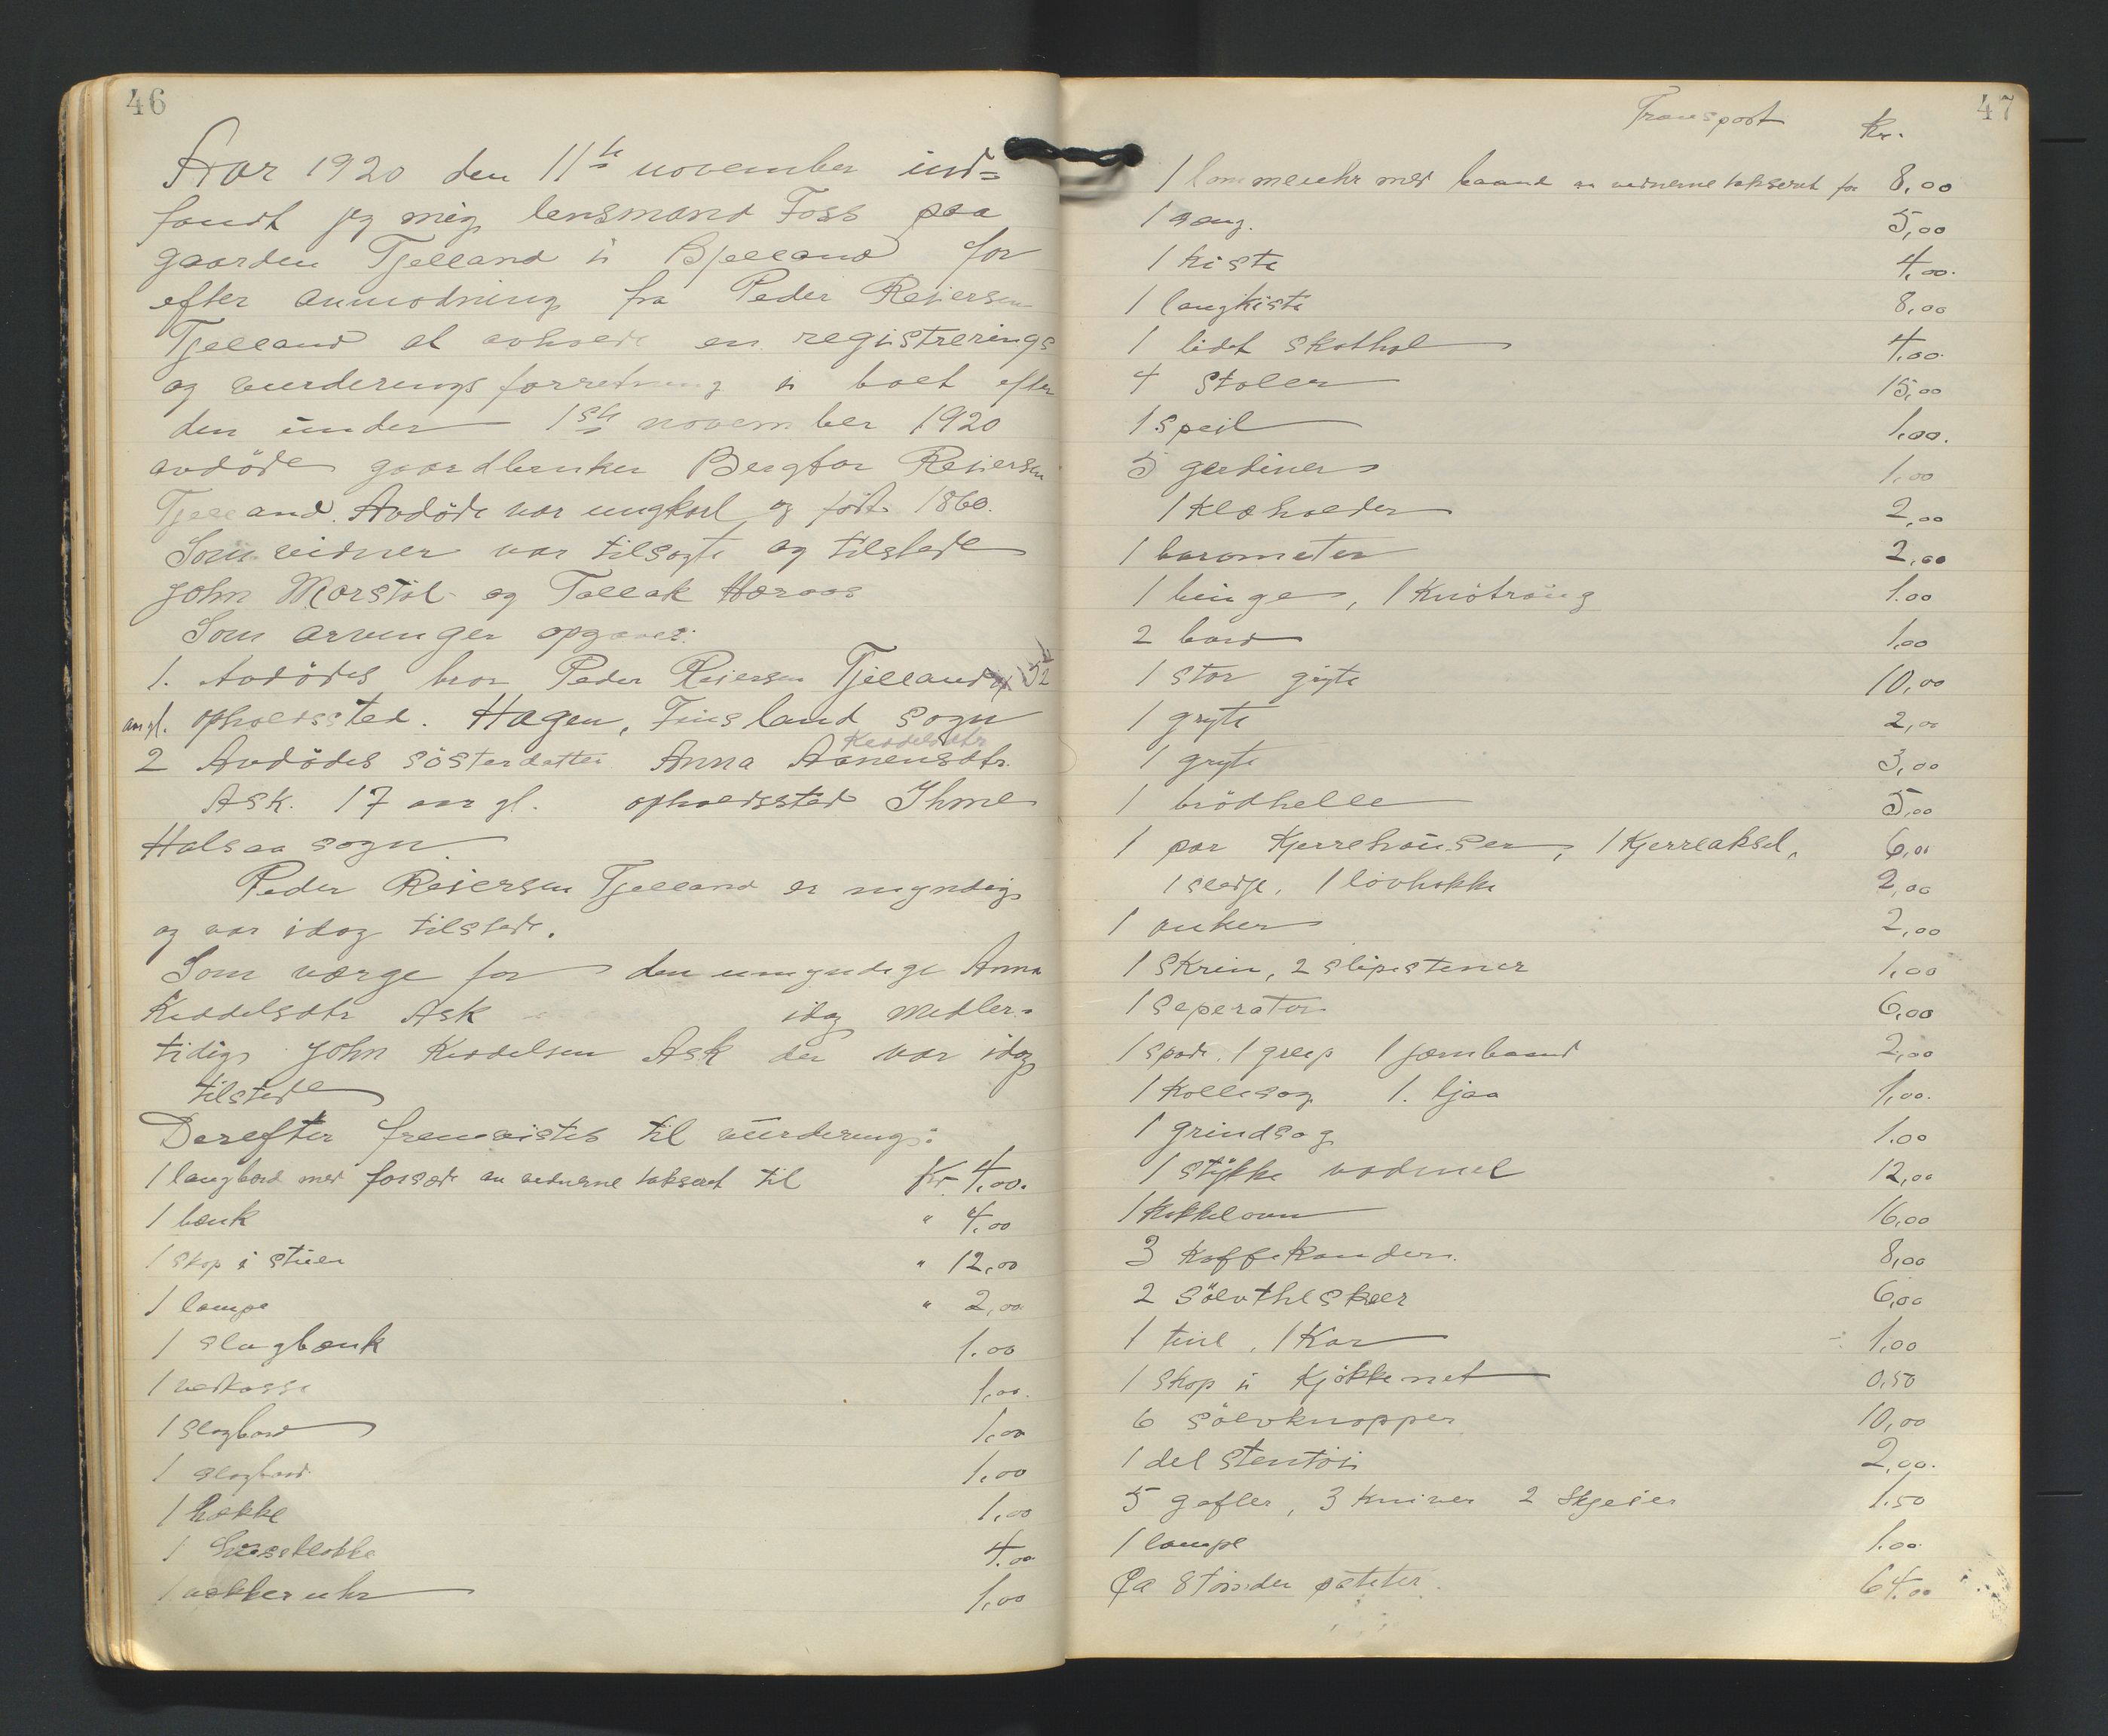 46
Aar 1920 den 11te november ind=
fandt jeg mig lensmand Foss paa
gaarden Tjelland i Bjelland for
efter anmodning fra Peder Reiersen
Tjelland at avholde en registrerings
og vurderingsforretning i boet efter
den under 1ste november 1920
avdöde gaardbruker Bergtor Reiersen
Tjelland. Avdöde var ungkarl og födt 1860.
Som vidner var tilsagte og tilstede
John Marstöl og Tallak Haraas
Som arvinger opgaves:
1. Avdödes bror Peder Reiersen Tjelland 52
aar gl. opholdssted. Hagen, Finsland sogn
Keddelsdtr
2 Avdödes sösterdatter Anna Aanensdtr.
Ask. 17 aar gl. opholdssted Ihme
Halsaa sogn
Peder Reiersen Tjelland er myndig
og var idag tilstede.
Som værge for den umyndige Anna
Keddelsdtr Ask idag midler=
tidig John Keddelsen Ask der var idag
tilstede
Derefter fremvistes til vurdering:
1 langbord med forsæde av vidnerne taksert til Kr. 4,00.
1 bænk " 4,00
1 skap i stuen " 12,00
1 lampe " 2,00
1 slagbænk 1.00
1 vedkasse 1,00.
1 slagbord 1,00
1 slagbord 1,00
1 hække 1,00
1 husklokke 4.00
1 vækkeruhr 1,00
47
Transport Kr.
1 lommeuhr med baand av vidnerne taksert for 8,00
1 seng. 5,00
1 kiste 4,00.
1 langkiste 8,00
1 lidet skathol 4,00
4 stoler 15,00
1 speil 1,00.
5 gardiner 1,00
1 klæholder 2,00
1 barometer 2,00
1 binge, 1 Knötraug 1.00
2 bord 1,00
1 stor gryte 10,00
1 gryte 2,00
1 gryte 3,00
1 brödhelle 5,00
1 par Kjerrehauser, 1 Kjerreaksel, 6,00
1 sledje, 1 lövhakke 2,00
1 anker 2,00
1 skrin, 2 slipestener 1,00
1 seperator 6,00
1 spade, 1 greip 1 jærnbaand 2,00
1 Kollesag 1. ljaa 1,00.
1 grindsag 1.00
1 stykke vadmel 12,00
1 Kakkelovn 16,00
3 Kaffekander. 8,00
2 sölvtheskeer 6,00
1 tine, 1 Kar 1,00
1 skap i Kjökkenet 0,50
6 sölvknapper 10,00
1 del stentöi 2,00.
5 gafler, 3 Kniver 2 skjeier 1.50
1 lampe 1.00
Ca 8 tönder poteter. 64,00